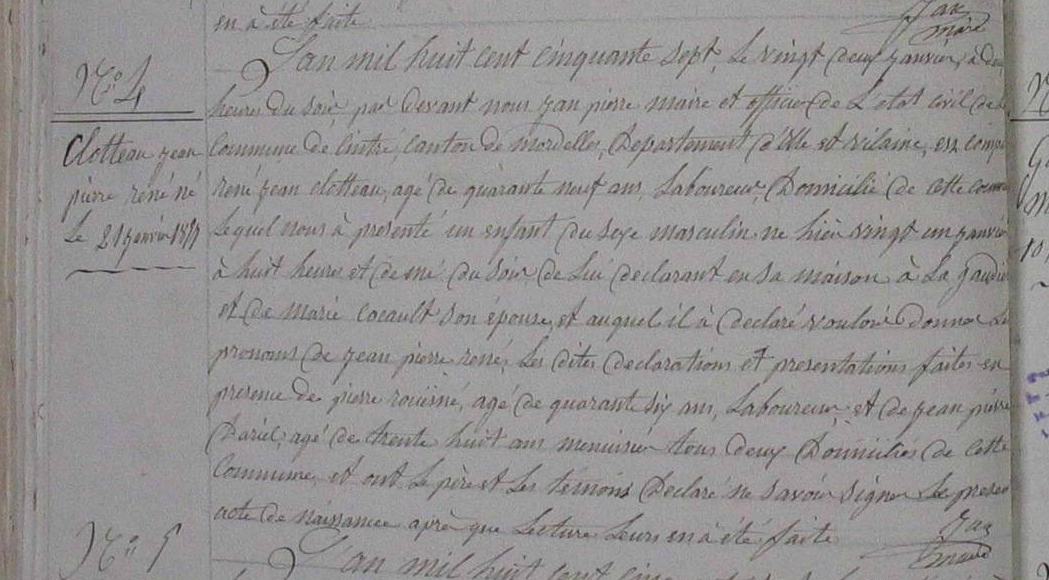 en à été faite
Jan
maire
N° 4
L'an mil huit cent cinquante sept, le vingt deux janvier, à deux
heures du soir par devant nous jan pierre maire et officier de L'etat civil de la
Clotteau jean
pierre réné né
Le 21 janvier 1857
Commune de Cintré, canton de mordelles, Departement d'ille et vilaine, est comparu
réné jean clotteau, agé de quarante neuf ans, Laboureur, Domicilié de cette commune
Lequel nous à presenté un enfant du sexe masculin né hièr vingt un janvier
à huit heures et demé du soir de Lui declarant en sa maison à La
et de marie cocault son épouse, et auquel il à declaré vouloir donner les
prenoms de jean pierre rené, Les dites declarations et presentations faites en
presence de pierre agé de quarante six ans, Laboureur et de jean pierre
agé de trente huit ans menuisier tous deux Domiciliés de cette
Commune, et ont Le père et Les témoins Declaré ne savoir signer Le present
acte de naissance après que Lecture Leurs en à été faite
Jan
maire
N° 5
L'an mil huit cent cinq